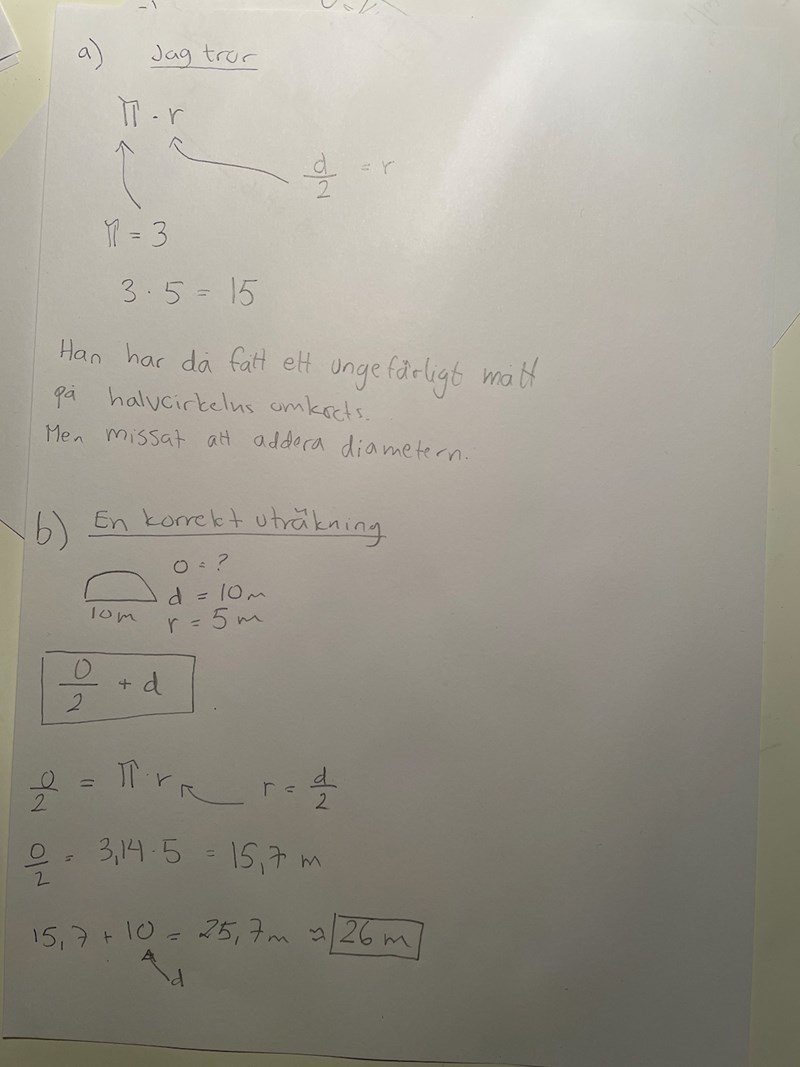 a) Jag tror
π · r
d/2 = r
π = 3
3 · 5 = 15
Han har då fått ett ungefärligt mått
på halvcirkelns omkrets.
Men missat att addera diametern.
b) En korrekt uträkning
O = ?
d = 10m
10m r = 5m
O/2 + d
O/2 = π · r r = d/2
O/2 = 3,14 · 5 = 15,7 m
15,7 + 10 = 25,7m ≈ 26 m
d